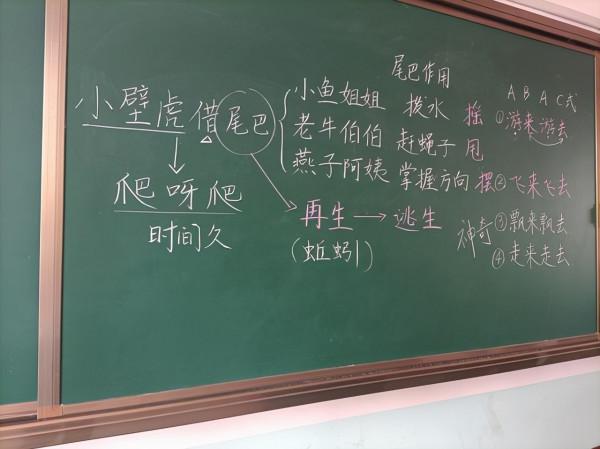 小壁虎借尾巴
爬呀爬
时间久
尾巴作用
小鱼姐姐 拨水 摇
老牛伯伯 赶蝇子 甩
燕子阿姨 掌握方向 摆
再生→逃生
(蚯蚓)
神奇
ABAC式
①游来游去
②飞来飞去
③飘来飘去
④走来走去